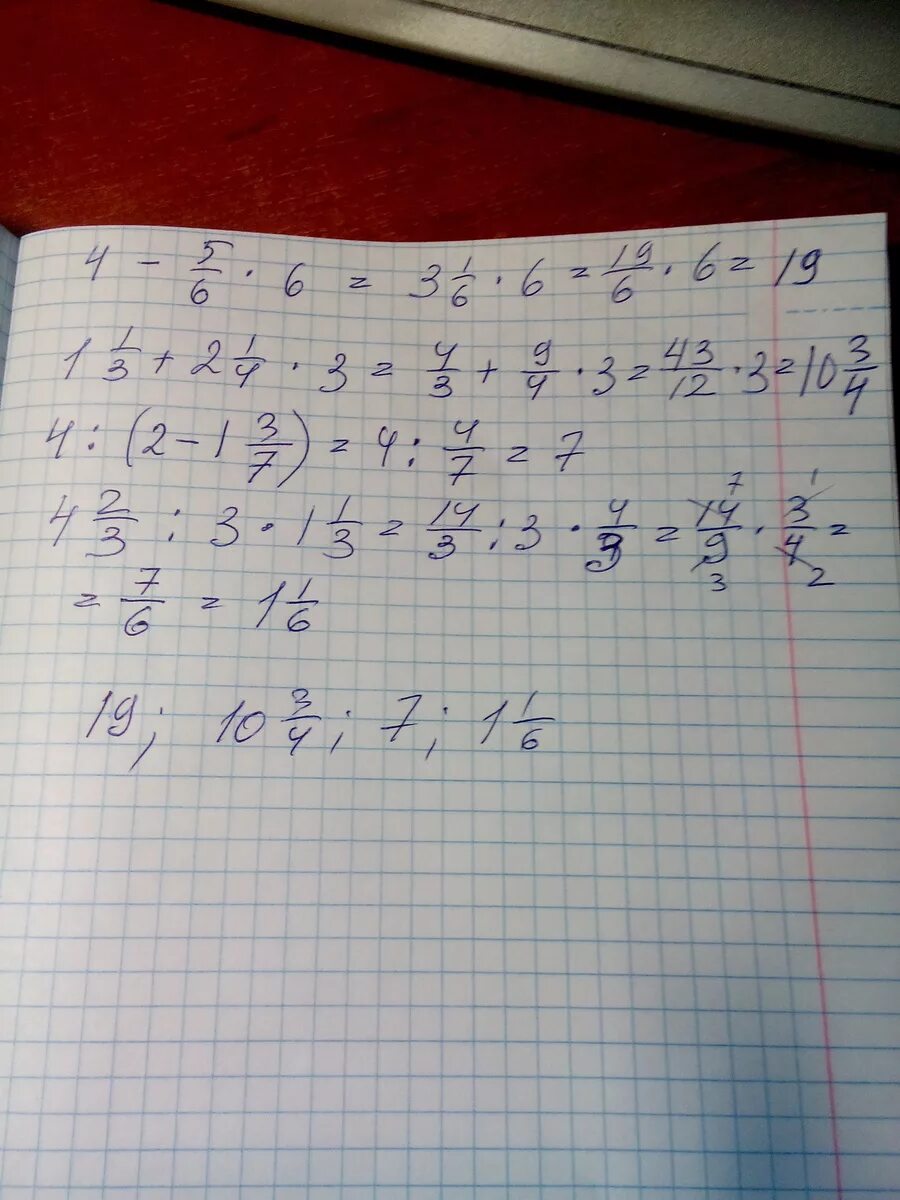 4 - 5/6 · 6 = 3 1/6 · 6 = 19/6 · 6 = 19
1 1/3 + 2 1/4 · 3 = 4/3 + 9/4 · 3 = 43/12 · 3 = 10 3/4
4 : (2 - 1 3/7) = 4 : 4/7 = 7
4 2/3 : 3 · 1 1/3 = 14/3 : 3 · 4/3 = 14/9 · 3/4 =
7 1
3 2
= 7/6 = 1 1/6
19; 10 3/4; 7; 1 1/6